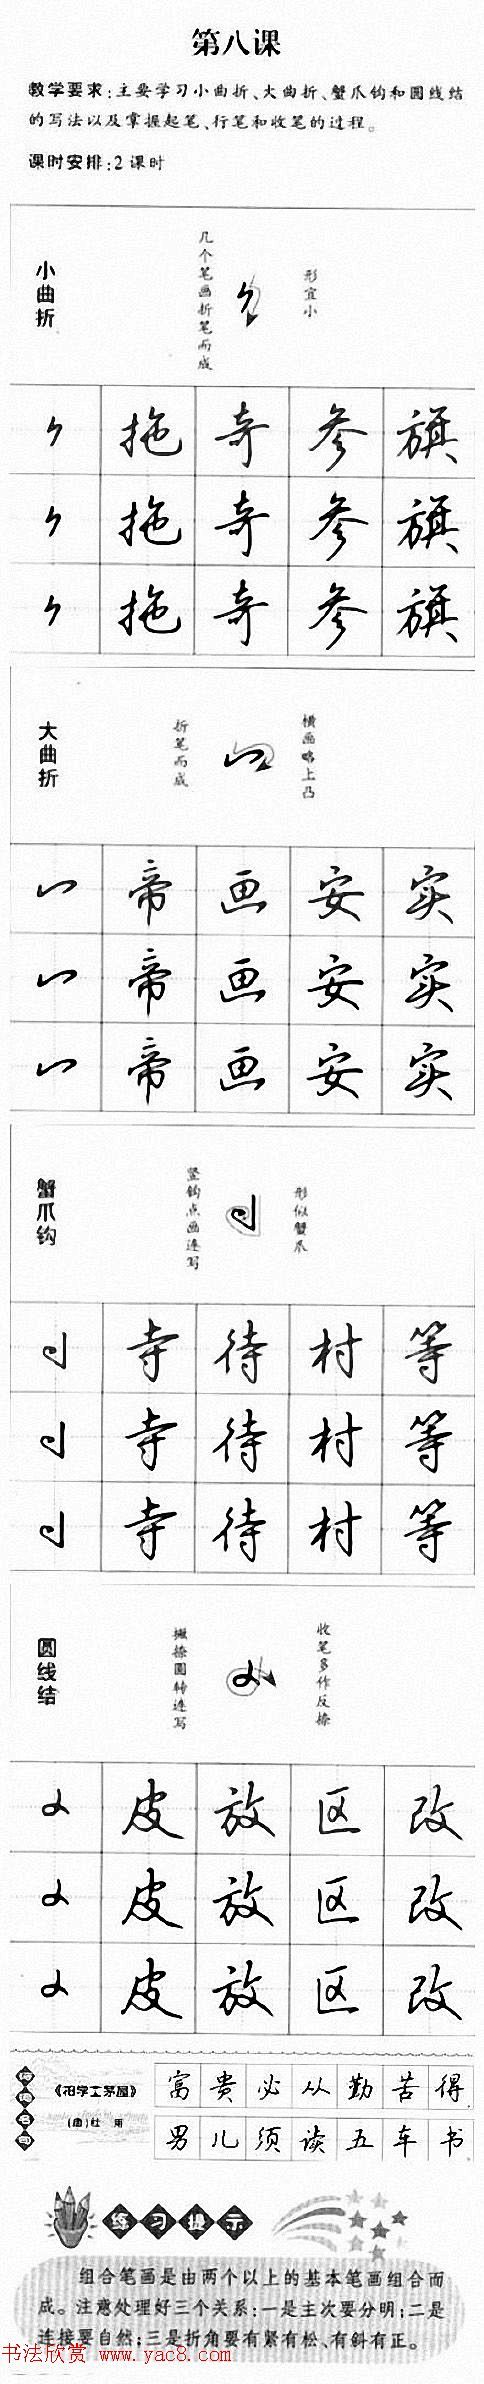 第八课
教学要求:主要学习小曲折、大曲折、蟹爪钩和圆线结
的写法以及掌握起笔、行笔和收笔的过程。
课时安排:2课时
小曲折
几个笔画折笔而成
形宜小
拖 奇 参 旗
拖 奇 参 旗
拖 奇 参 旗
大曲折
折笔而成
横画略上凸
帝 画 安 实
帝 画 安 实
帝 画 安 实
蟹爪钩
竖钩点画连写
形似蟹爪
寺 待 村 等
寺 待 村 等
寺 待 村 等
圆线结
撇捺圆转连写
收笔多作反捺
皮 放 区 改
皮 放 区 改
皮 放 区 改
名句
《柏学士茅屋》
(唐)杜甫
富贵必从勤苦得
男儿须读五车书
练习提示
组合笔画是由两个以上的基本笔画组合而
成。注意处理好三个关系:一是主次要分明;二是
连接要自然;三是折角要有紧有松、有斜有正。
书法欣赏 www.yac8.com